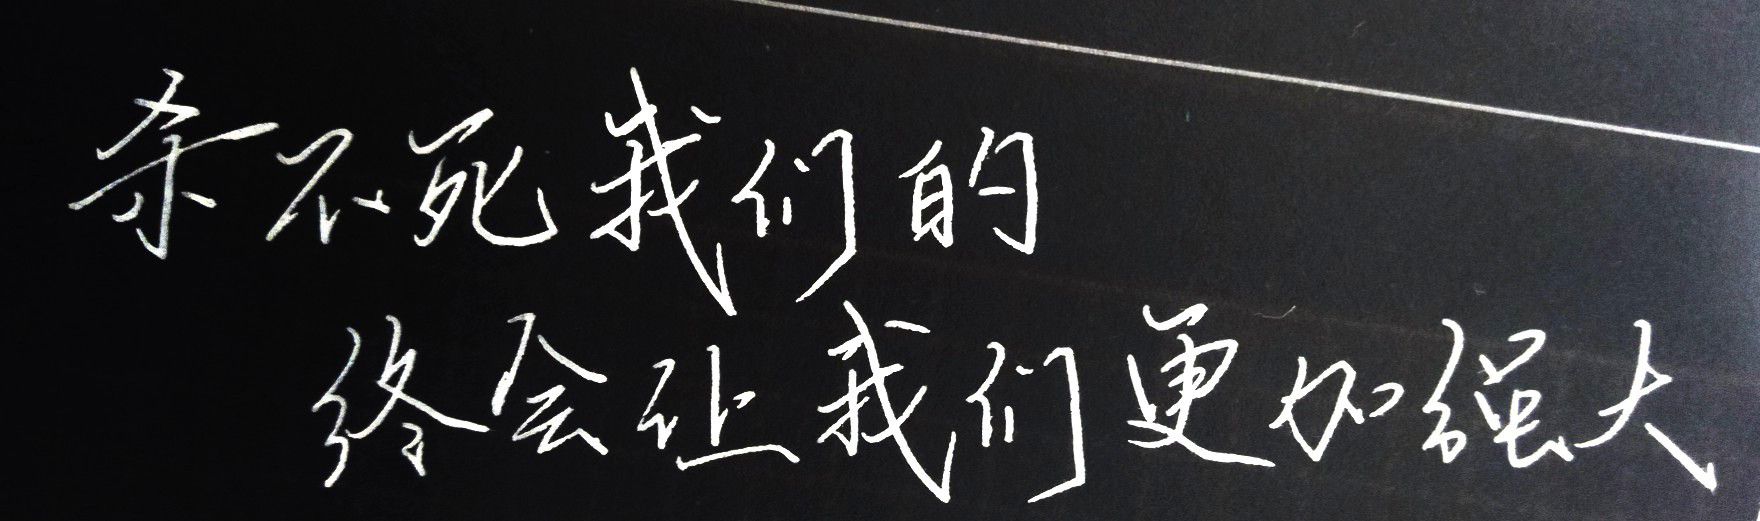 杀不死我们的
终会让我们更加强大